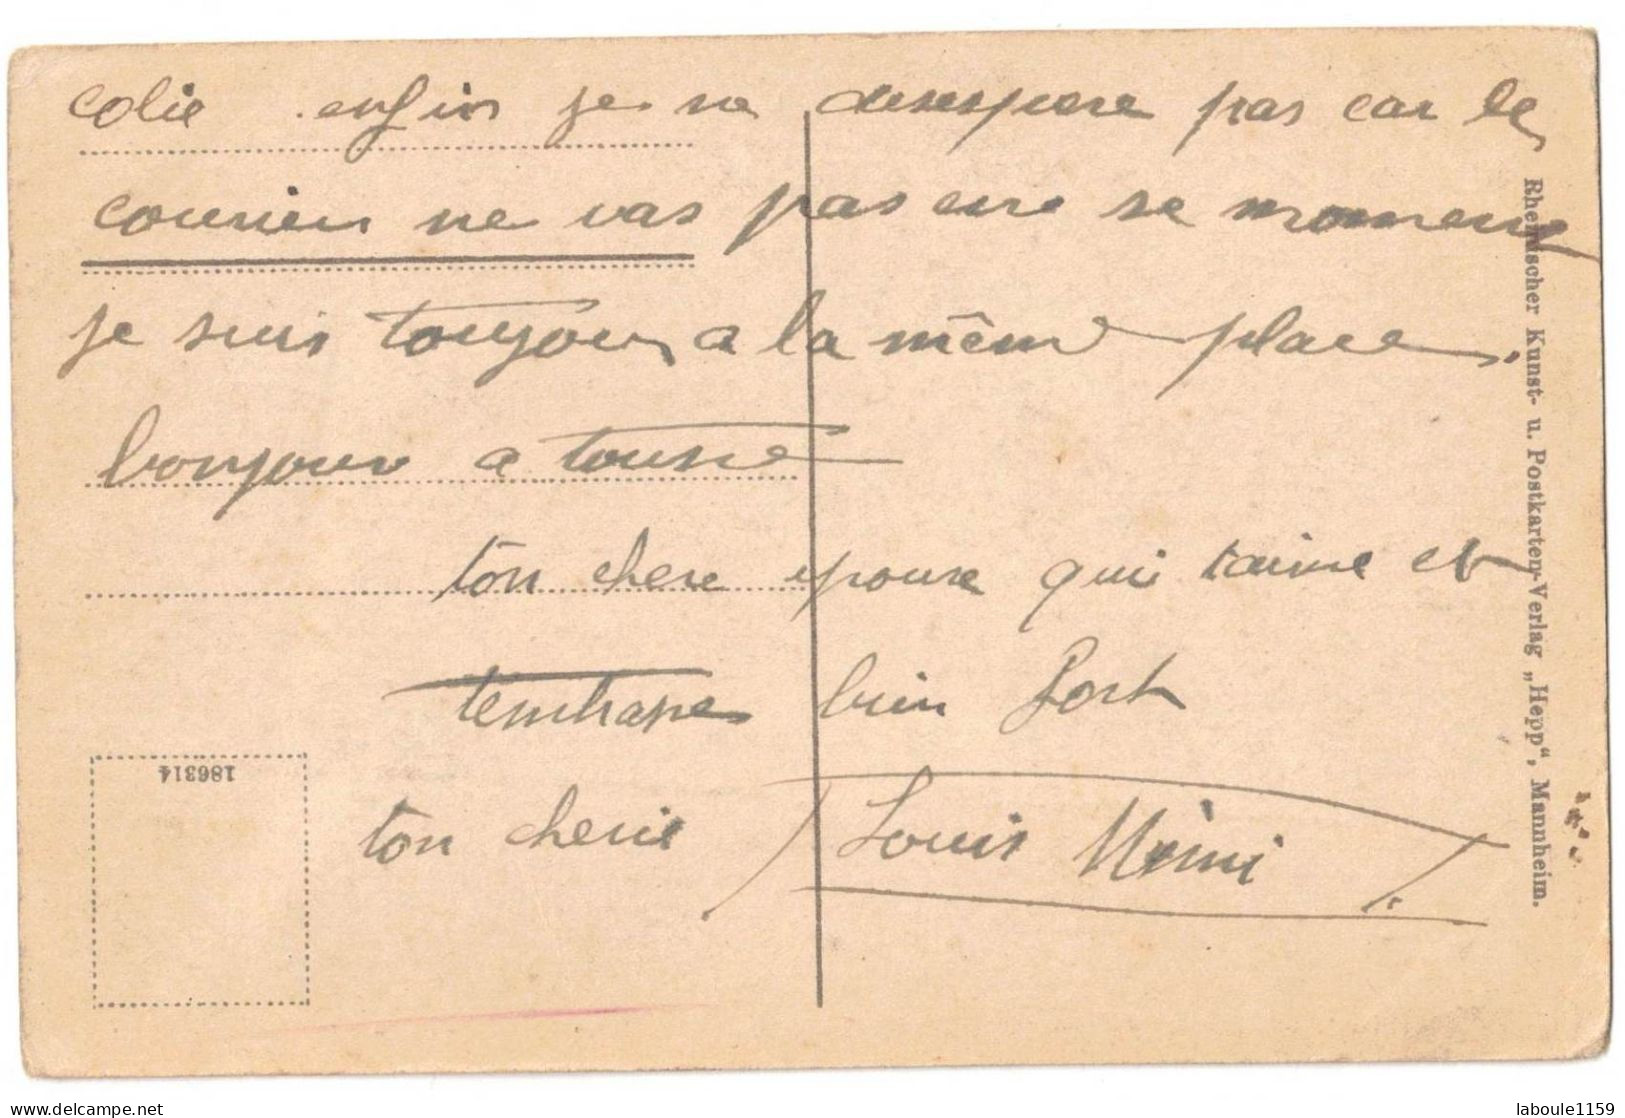 colie enfin je ne desespere pas car le
courrier ne vas pas en se moment
je suis toujour a la même place.
bonjour a tousse
ton chere epouse qui taime et
tembrase bien fort
ton cherie Louis Mimi
186314
Rheinischer Kunst- u. Postkarten-Verlag „Hepp“, Mannheim.
laboule1159